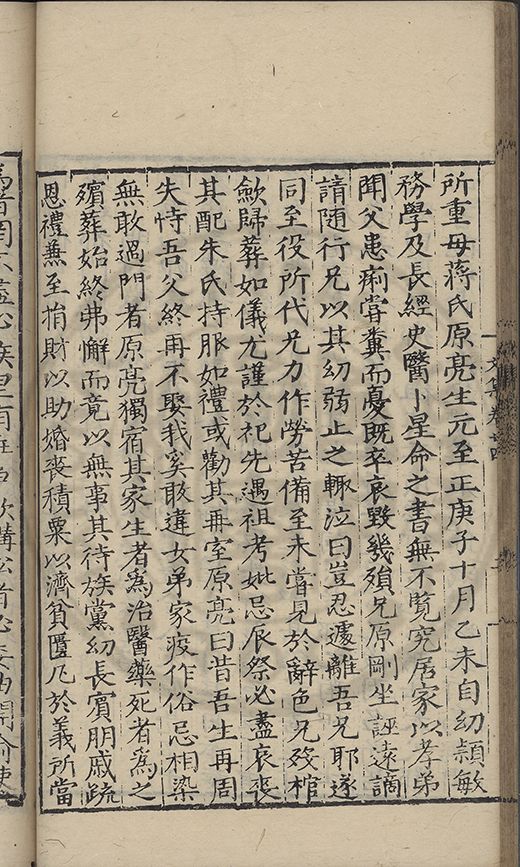 所重母蔣氏原亮生元至正庚子十月乙未自幼頴敏
務學及長經史醫卜星命之書無不覧究居家以孝弟
聞父患痢甞糞而憂既卒哀毀幾殞兄原剛坐誣遠謫
請随行兄以其幼弱止之輙泣曰豈忍遽離吾兄耶遂
同至役所代兄力作勞苦備至未嘗見於辭色兄歿棺
歛歸葬如儀尤謹於祀先遇祖考妣忌辰祭必盡哀喪
其配朱氏持服如禮或勸其再室原亮曰昔吾生再周
失恃吾父終再不娶我奚敢違女弟家疫作俗忌相染
無敢過門者原亮獨宿其家生者為治醫藥死者為之
殯葬始終弗懈而竟以無事其待族黨幼長賓朋戚疏
恩禮蕪至捐財以助婚喪積粟以濟貧匱凡於義所當
文集卷廿四